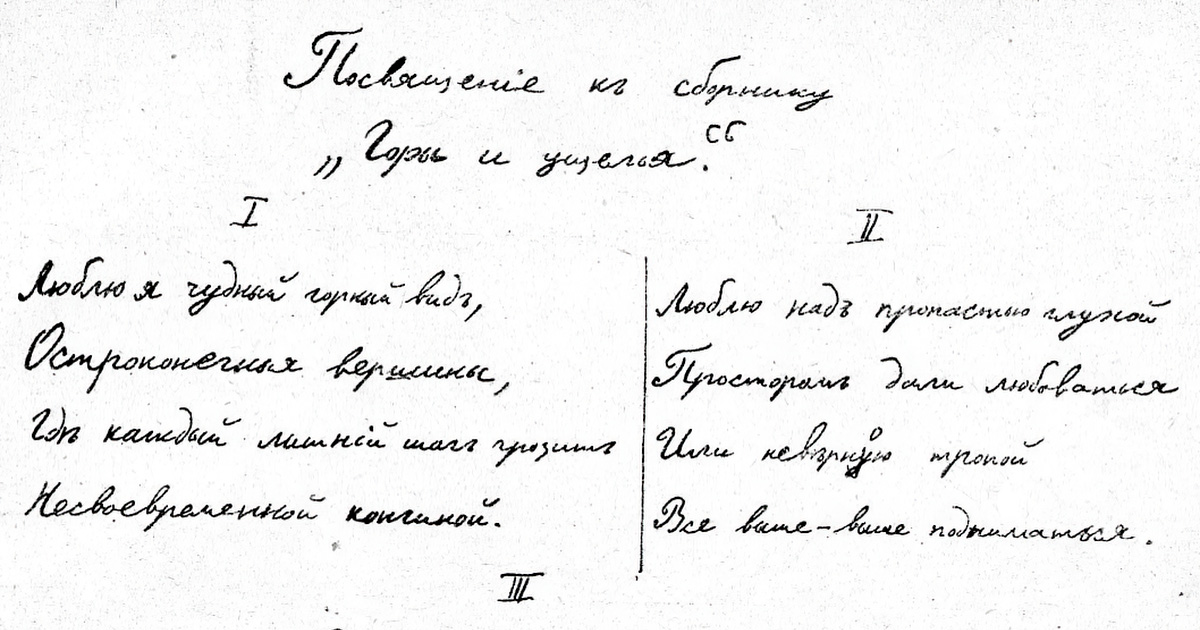 Посвященіе къ сборнику
„Горы и ущелья". Сб
I
Люблю я чудный горный видъ,
Остроконечныя вершины,
Гдѣ каждый лишній шагъ грозитъ
Несвоевременной кончиной.
II
Люблю надъ пропастью глухой
Просторомъ дали любоваться
Или невѣрною тропой
Все выше – выше подниматься.
III